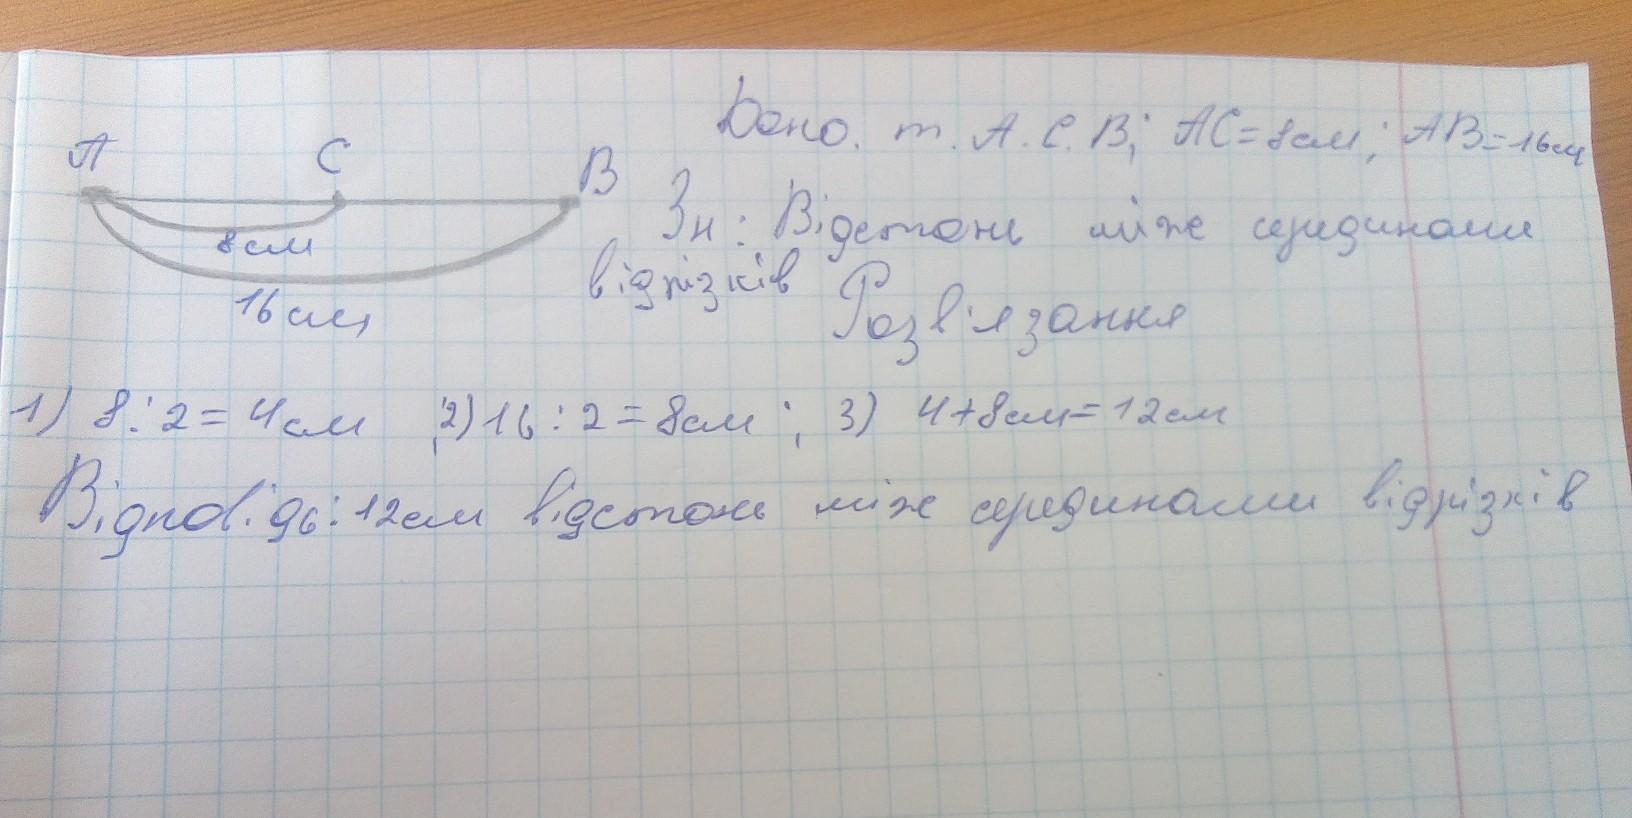 A C B
8см
16см
Дано. т. А. С. В; АС=8см; АВ=16см
Зн: Відстань між серединами
відрізків
Розв'язання
1) 8:2=4см ;2) 16:2=8см ; 3) 4+8см=12см
Відповідь: 12см відстань між серединами відрізків